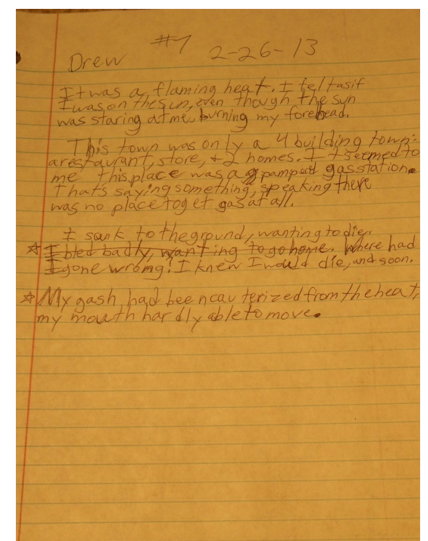 Drew #1 2-26-13
It was a flaming heat. I felt as if
I was on the sun, even though the sun
was staring at me, burning my forehead.
This town was only a 4 building town:
a restaurant, store, + 2 homes. It seemed to
me this place was a pampud gas station.
That's saying something, speaking there
was no place to get gas at all.
I sank to the ground, wanting to die.
☆ I bled badly, wanting to go home. Where had
I gone wrong? I knew I would die, and soon.
☆ My gash had been cauterized from the heat,
my mouth hardly able to move.